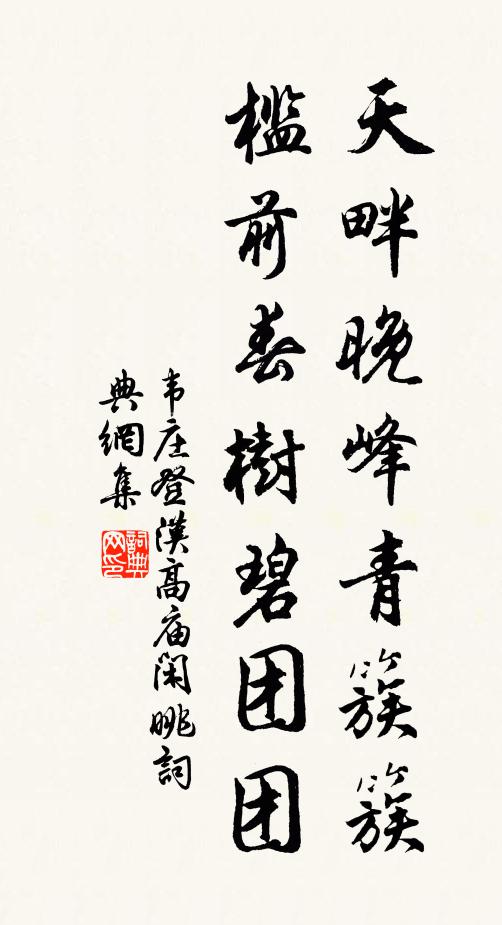 天畔晚峰青簇簇
檻前春樹碧团团
韦庄登漢高庙闲眺詞
典網集
詞典网印